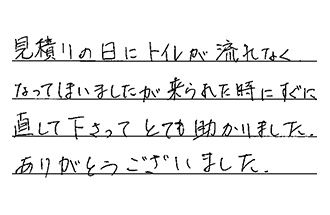 見積りの日にトイレが流れなく
なってしまいましたが来られた時にすぐに
直して下さってとても助かりました.
ありがとうございました.